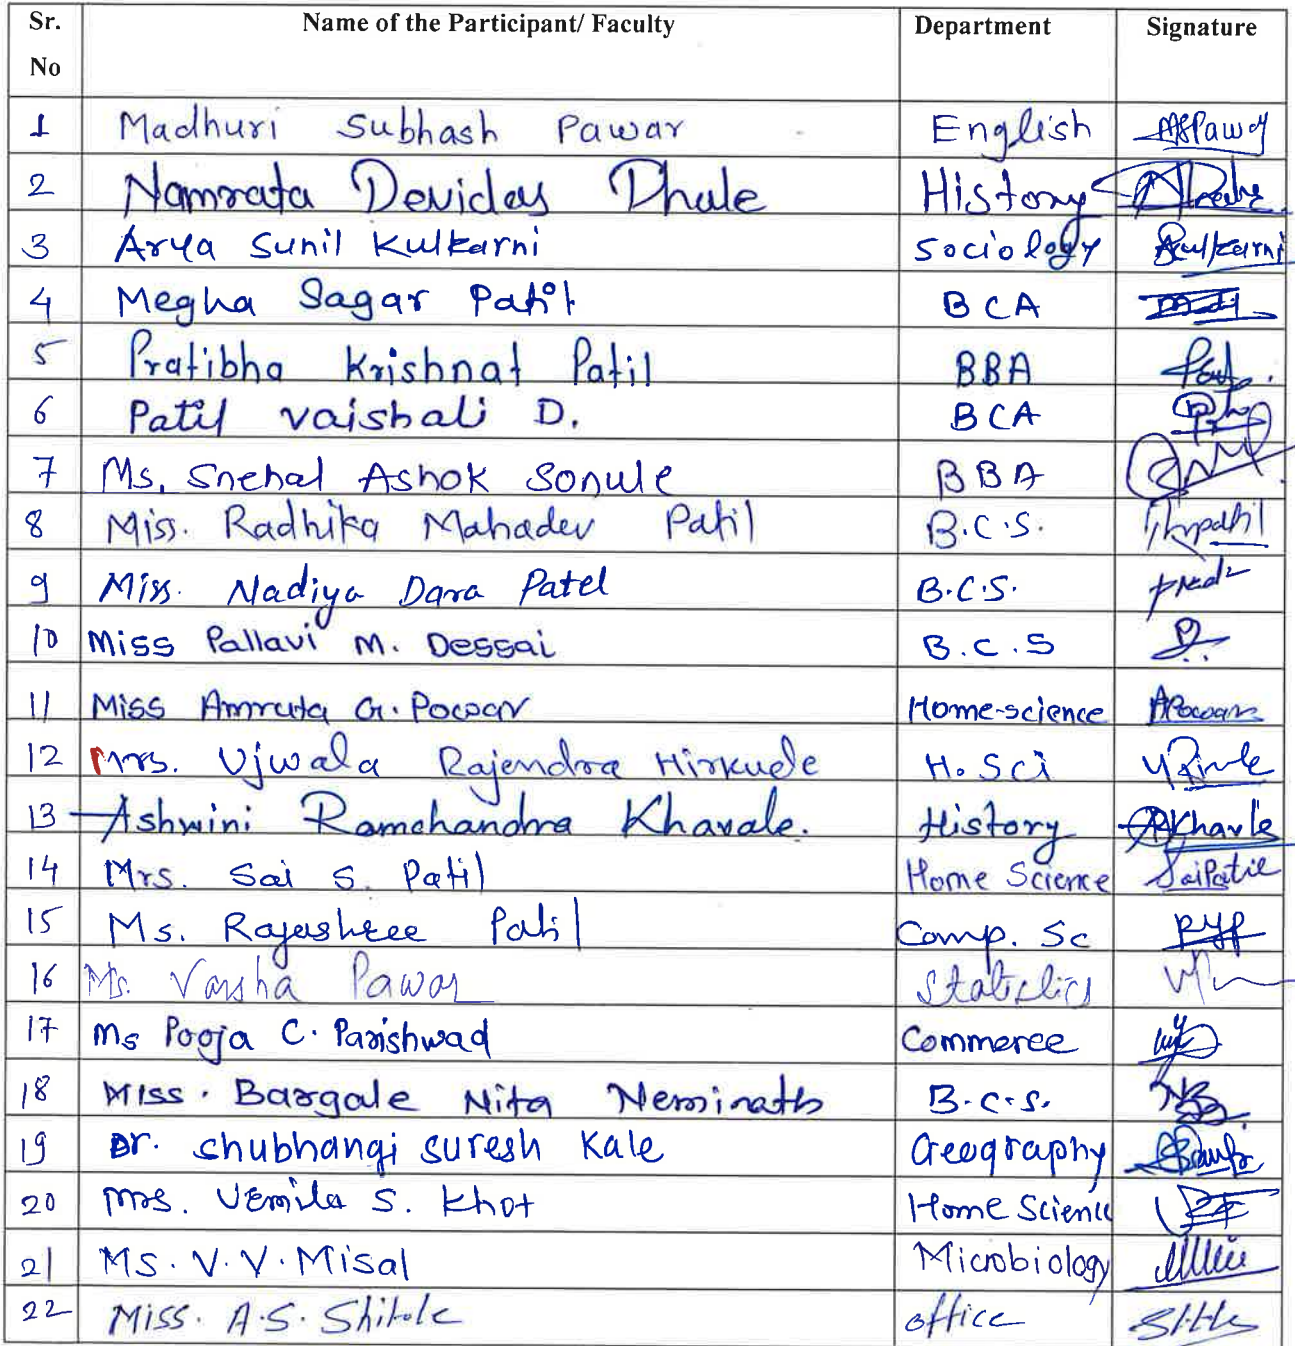 Sr. No | Name of the Participant/ Faculty | Department | Signature
1 | Madhuri Subhash Pawar | English | MSPawar
2 | Namrata Devidas Dhale | History
3 | Arya Sunil Kulkarni | Sociology | Kulkarni
4 | Megha Sagar Patil | BCA
5 | Pratibha Krishnat Patil | BBA
6 | Patil Vaishali D. | BCA
7 | Ms. Snehal Ashok Sonule | BBA
8 | Miss. Radhika Mahadev Patil | B.C.S. | Rmpatil
9 | Miss. Nadiya Dara Patel | B.C.S.
10 | Miss Pallavi M. Dessai | B.C.S
11 | Miss Amruta G. Powar | Home-science | APowar
12 | Mrs. Ujwala Rajendra Hirkude | H. Sci
13 | Ashwini Ramchandra Khavale. | History | ARKhavle
14 | Mrs. Sai S. Patil | Home Science | SaiPatil
15 | Ms. Rajashree Patil | Comp. Sc | RYP
16 | Ms. Varsha Pawar | Statistics
17 | Ms Pooja C. Parishwad | Commerce
18 | Miss. Bargale Nita Neminath | B.C.S.
19 | Dr. Shubhangi Suresh Kale | Geography
20 | Mrs. Urmila S. Khot | Home Science
21 | Ms. V.V. Misal | Microbiology
22 | Miss. A.S. Shitole | office